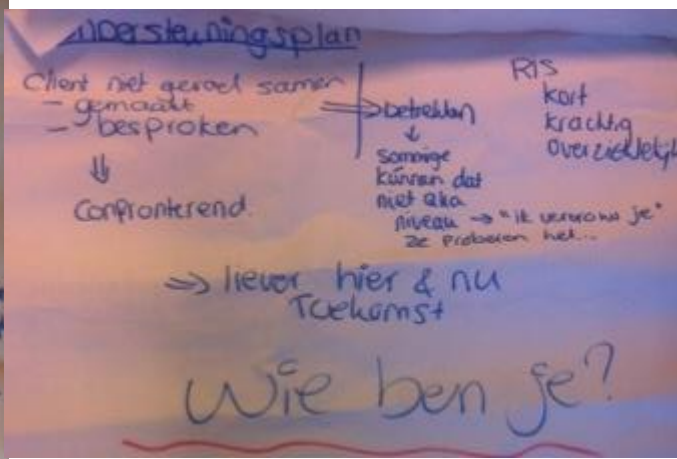 ondersteuningsplan
Client niet gevoel samen
- gemaakt
- besproken
⇓
Confronterend.
⇒ betrekken
↓
Sommige
kunnen dat
niet qua
niveau → "ik vertrouw je"
ze proberen het...
RIS
kort
krachtig
overzichtelijk
⇒ liever hier & nu
Toekomst
Wie ben je?